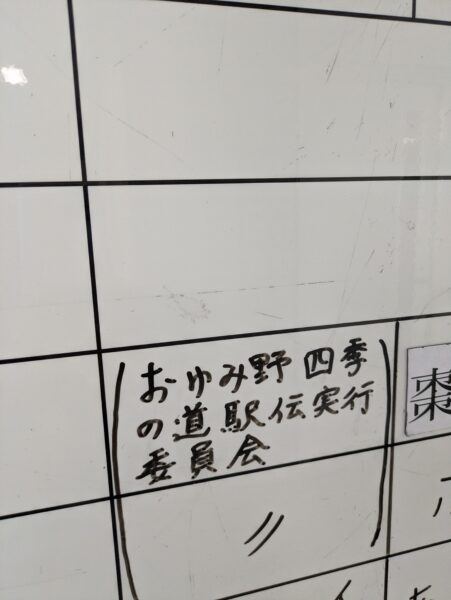 おゆみ野四季
の道駅伝実行
委員会
〃
棗